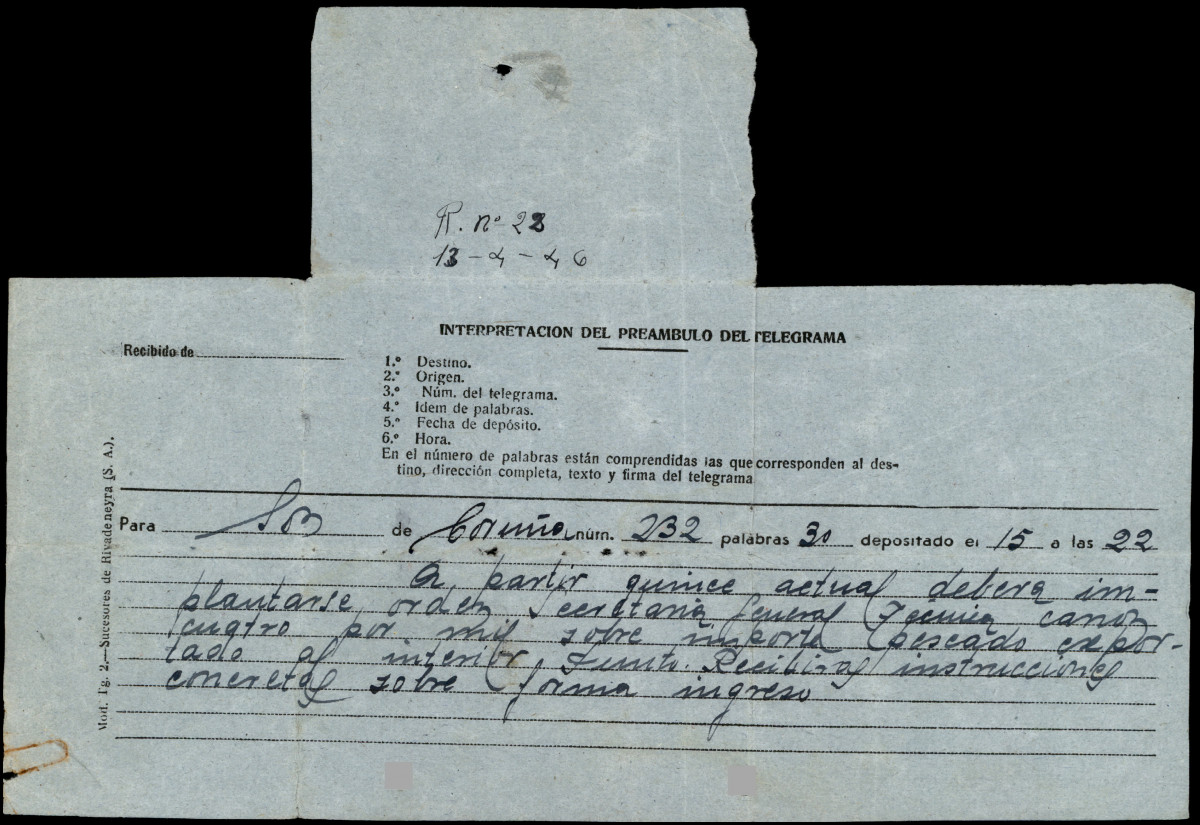 R. nº 28
13-4-46
INTERPRETACION DEL PREAMBULO DEL TELEGRAMA
Recibido de
1.º Destino.
2.º Origen.
3.º Núm. del telegrama.
4.º Idem de palabras.
5.º Fecha de depósito.
6.º Hora.
En el número de palabras están comprendidas las que corresponden al des-
tino, dirección completa, texto y firma del telegrama
Mod. Tg. 2.—Sucesores de Rivadeneyra (S. A.).
Para de Coruña núm. 232 palabras 30 depositado el 15 a las 22
A partir quince actual debera im-
plantarse orden Secretaria General Tecnica canon
cuatro por mil sobre importe pescado expor-
tado al interior. Recibiras instrucciones
concretas sobre forma ingreso